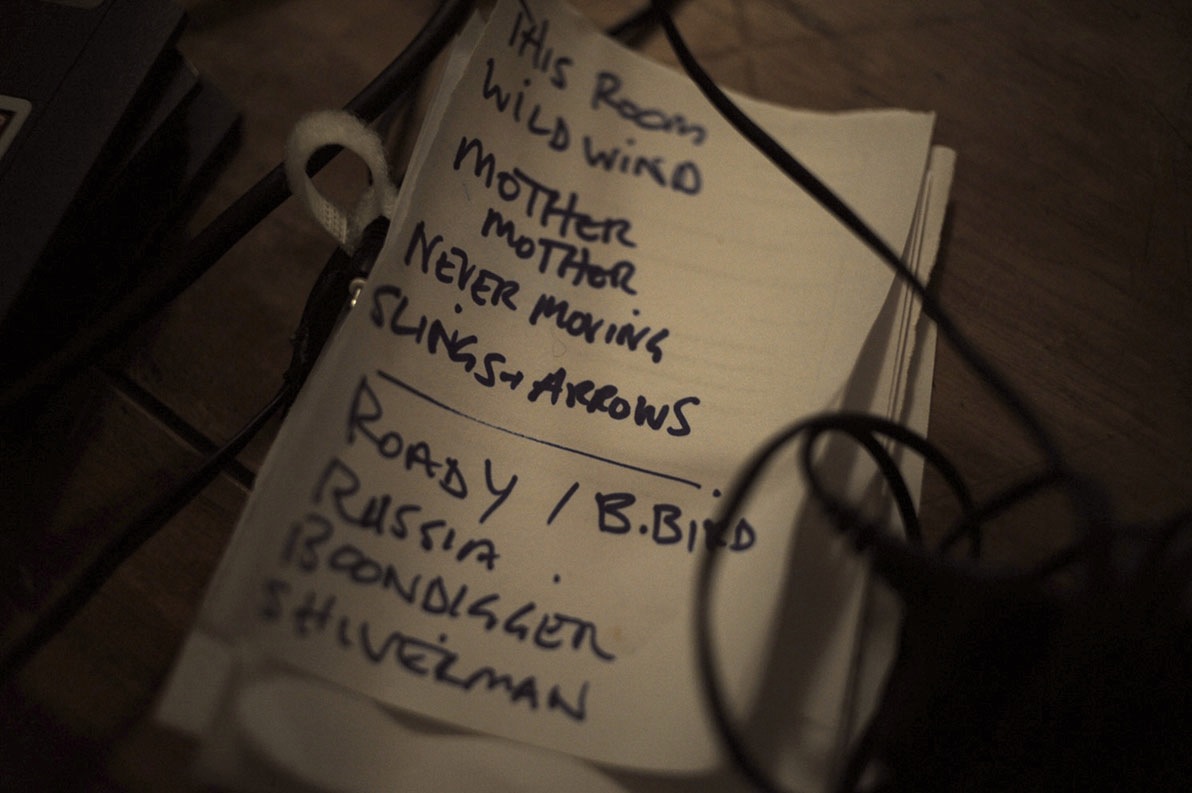 THIS ROOM
WILD WIND
MOTHER
MOTHER
NEVER MOVING
SLINGS + ARROWS
ROADY / B.BIRD
RUSSIA
BOONDIGGER
SHIVERMAN